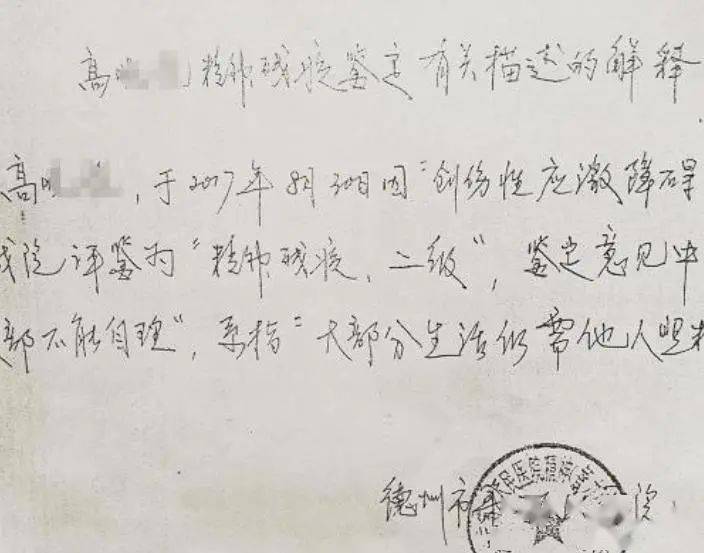 高 精神残疾鉴定有关描述的解释
高 ,于2017年8月30日因"创伤性应激障碍
我院评鉴为"精神残疾、二级",鉴定意见中
部不能自理",系指"大部分生活仍需他人照料
德州市 院
民医院精神